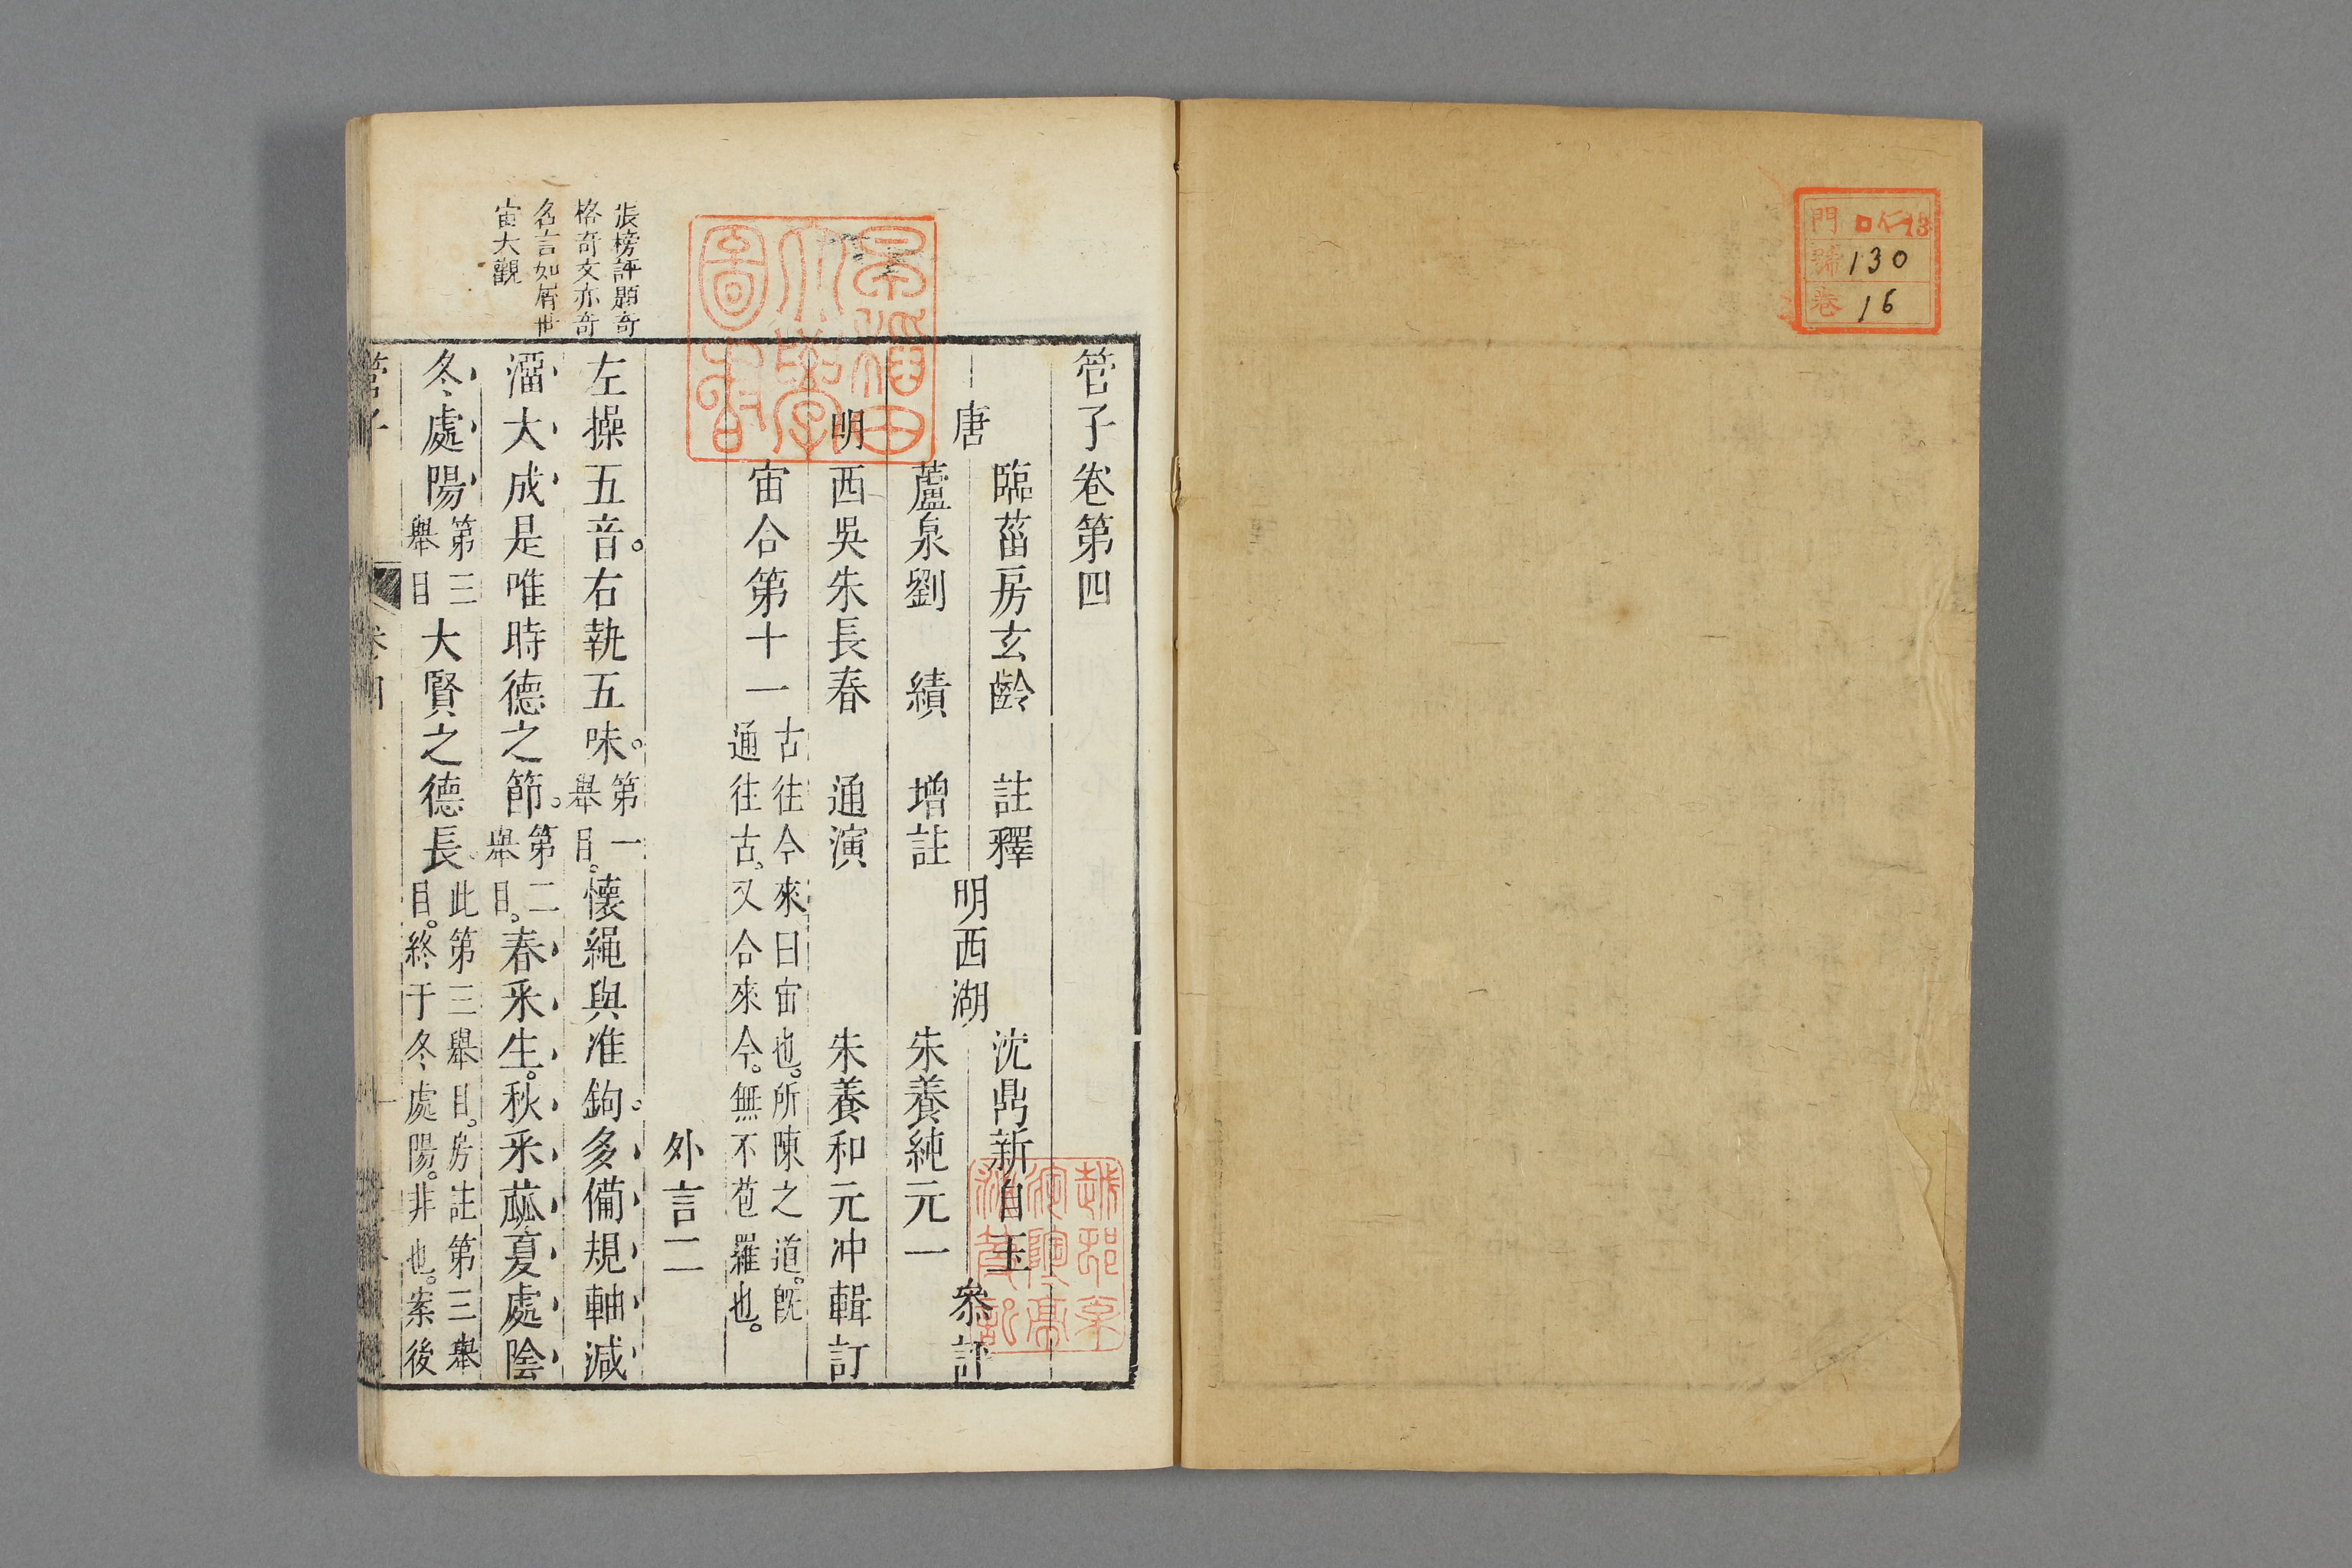 門 仁 13
號 130
卷 16
管子卷第四
唐
臨菑房玄齡 註釋
蘆泉劉 績 增註
明西湖
沈鼎新自玉
朱養純元一
參評
明西吳朱長春 通演 朱養和元冲輯訂
宙合第十一
古往今來曰宙也。所陳之道。旣
通往古。又合來今。無不苞羅也。
外言二
左操五音。右執五味。
第一
舉目。
懷繩與准鉤。多備規軸減
溜大成是唯時德之節。
第二
舉目。
春采生。秋采蓏夏處陰
冬處陽
第三
舉目
大賢之德長。
此第三舉目。房註第三舉
目。終于冬處陽。非也。案後
張榜評題奇
格奇文亦奇
名言如屑世
宙大觀
早稻田大學圖書
管子
卷四